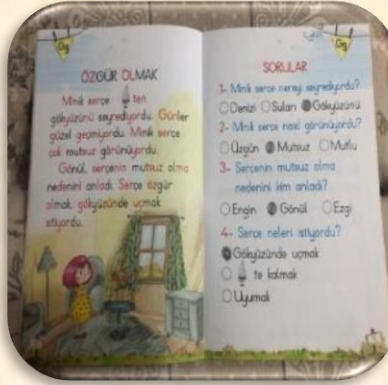 Öğ
ÖZGÜR OLMAK
Minik serçe ten
gökyüzünü seyrediyordu. Günler
güzel geçmiyordu. Minik serçe
çok mutsuz görünüyordu.
Gönül, serçenin mutsuz olma
nedenini anladı. Serçe özgür
olmak, gökyüzünde uçmak
istiyordu.
Öğ
SORULAR
1- Minik serçe nereyi seyrediyordu?
Denizi Suları Gökyüzünü
2- Minik serçe nasıl görünüyordu?
Üzgün Mutsuz Mutlu
3- Serçenin mutsuz olma
nedenini kim anladı?
Engin Gönül Ezgi
4- Serçe neleri istiyordu?
Gökyüzünde uçmak
te kalmak
Uyumak